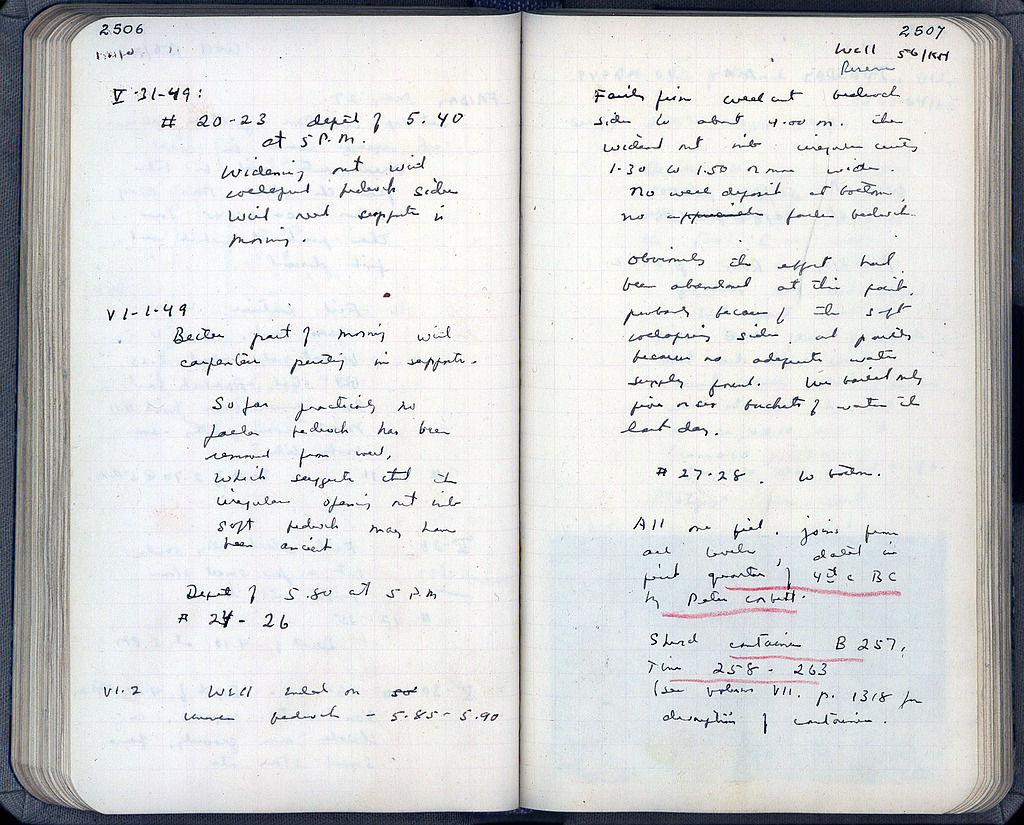 2506
V-31-49:
# 20-23 depth of 5.40
at 5 P.M.
Widening out with
collapsed bedrock sides
Will need supports in
morning.
VI-1-49
Better part of morning with
carpenter putting in supports.
So far practically no
fallen bedrock has been
removed from well,
which suggests that the
irregular opening out into
soft bedrock may have
been ancient
Depth of 5.80 at 5 P.M
# 24-26
VI.2 Well ended on
uneven bedrock - 5.85-5.90
2507
Well 56/KH
Reserve
Fairly firm well cut bedrock
sides to about 4.00 m. then
widened out into irregular cavity
1.30 to 1.50 or more wide.
No well deposit at bottom,
no fallen bedrock.
Obviously the effort had
been abandoned at this point,
perhaps because of the soft
collapsing sides, and partly
because no adequate water
supply found. We bailed only
five or six buckets of water the
last day.
# 27-28. to bottom.
All one fill. joins from
all levels, dated in
first quarter of 4th c BC
by Peter Corbett.
Sherd container B 257,
Tins 258-263
(see volume VII. p. 1318 for
description of container.